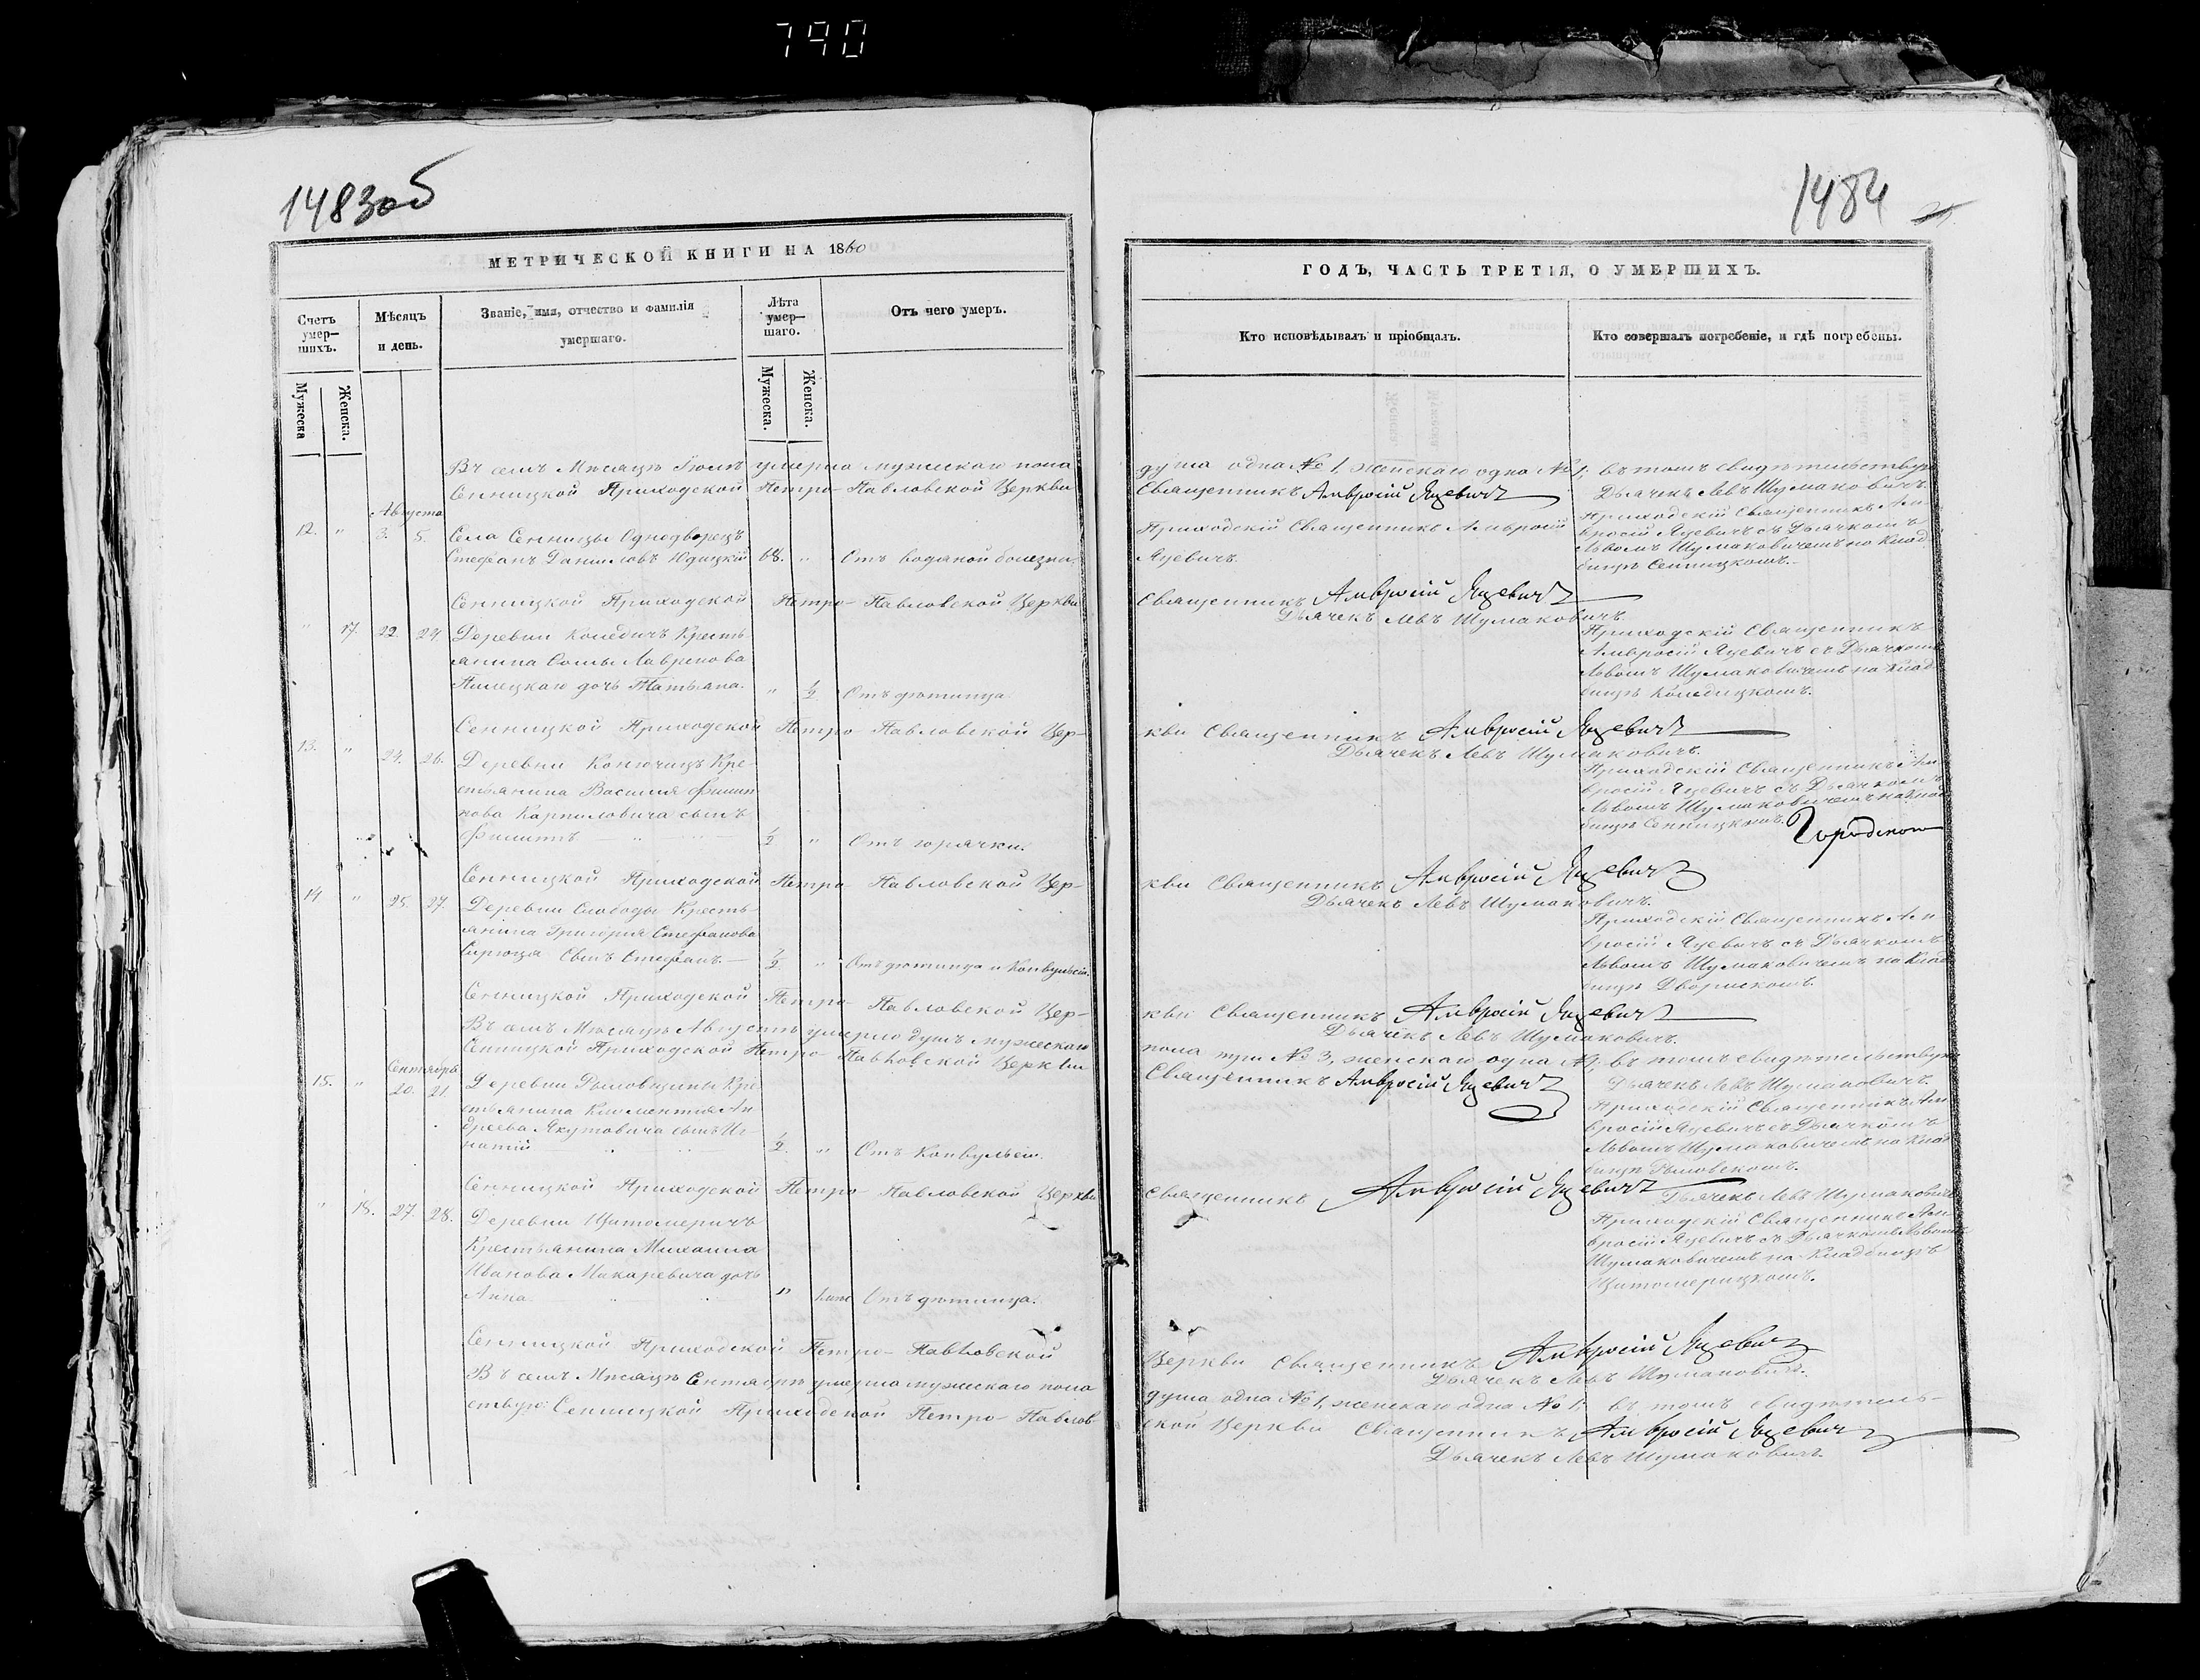 790
1483об
МЕТРИЧЕСКОЙ КНИГИ НА 1860
Счетъ умер- шихъ.
Мѣсяцъ и день.
Званіе, имя, отчество и фамилія умершаго.
Лѣта умер- шаго.
Отъ чего умеръ.
Мужеска
Женска.
Мужеска.
Женска.
Въ семъ Мѣсяцѣ Іюлѣ умерло мужескаго пола
Сенницкой Приходской Петро-Павловской Церкви
Августа
12. " 3. 5. Села Сенницы Однодворецъ
Стефанъ Даниловъ Юдицкій 68. " Отъ водяной болезни.
Сенницкой Приходской Петро-Павловской Церкви
" 17. 22. 24. Деревни Коледичъ Кресть-
янина Сомы Лавренова
дочь Татьяна. " ½ Отъ дѣтинца.
Сенницкой Приходской Петро-Павловской Цер-
13. " 24. 26. Деревни Конючицъ Кре-
стьянина Василія Филип-
пова Карпиловича сынъ
Филиппъ ½ " Отъ горячки.
Сенницкой Приходской Петро-Павловской Цер-
14 " 25. 27. Деревни Слободы Кресть-
янина Григорія Стефанова
Сынъ Стефанъ. ½ " Отъ дѣтинца и Конвульсіи.
Сенницкой Приходской Петро-Павловской Цер-
Въ семъ Мѣсяцѣ Августѣ умерло душъ мужескаго
Сенницкой Приходской Петро-Павловской Церкви
Сентября
15. " 20. 21. Деревни Рыловщины Кре-
стьянина Климентія Ан-
дреева Якутовича сынъ Иг-
натій ½ " Отъ Конвульсіи.
Сенницкой Приходской Петро-Павловской Церкви
" 18. 27. 28. Деревни Цитомеричъ
Крестьянина Михаила
Иванова Макаревича дочь
Анна. " Отъ дѣтинца.
Сенницкой Приходской Петро-Павловской
Въ семъ Мѣсяцѣ Сентябрѣ умерло мужескаго пола
ствую: Сенницкой Приходской Петро-Павлов-
1484
ГОДЪ, ЧАСТЬ ТРЕТІЯ, О УМЕРШИХЪ.
Кто исповѣдывалъ и пріобщалъ.
Кто совершалъ погребеніе, и гдѣ погребены.
душа одна №1, женскаго одна №1; въ томъ свидѣтельствую
Священникъ Амвросій Яцевичъ
Дьячекъ Левъ Шумаковичъ.
Приходскій Священникъ Амвросій
Яцевичъ.
Приходскій Священникъ Ам-
вросій Яцевичъ съ Дьячкомъ
Львомъ Шумаковичемъ на Клад-
бищѣ Сенницкомъ.
Священникъ Амвросій Яцевичъ
Дьячекъ Левъ Шумаковичъ.
Приходскій Священникъ
Амвросій Яцевичъ съ Дьячкомъ
Львомъ Шумаковичемъ на Клад-
бищѣ Коледицкомъ.
кви Священникъ Амвросій Яцевичъ
Дьячекъ Левъ Шумаковичъ.
Приходскій Священникъ Ам-
вросій Яцевичъ съ Дьячкомъ
Львомъ Шумаковичемъ на Клад-
бищѣ Сенницкомъ. Городском
кви Священникъ Амвросій Яцевичъ
Дьячекъ Левъ Шумаковичъ.
Приходскій Священникъ Ам-
вросій Яцевичъ съ Дьячкомъ
Львомъ Шумаковичемъ на Клад-
бищѣ Дворискомъ.
кви Священникъ Амвросій Яцевичъ
Дьячекъ Левъ Шумаковичъ.
пола три №3, женскаго одна №1, въ томъ свидѣтельствую
Священникъ Амвросій Яцевичъ
Дьячекъ Левъ Шумаковичъ.
Приходскій Священникъ Ам-
вросій Яцевичъ съ Дьячкомъ
Львомъ Шумаковичемъ на Клад-
бищѣ Рыловскомъ.
Священникъ Амвросій Яцевичъ
Дьячекъ Левъ Шумаковичъ
Приходскій Священникъ Ам-
вросій Яцевичъ съ Дьячкомъ Львомъ
Шумаковичемъ на Кладбищѣ
Цитомерицкомъ.
Церкви Священникъ Амвросій Яцевичъ
Дьячекъ Левъ Шумаковичъ.
душа одна №1, женскаго одна №1; въ томъ свидѣтель-
ской Церкви Священникъ Амвросій Яцевичъ
Дьячекъ Левъ Шумаковичъ.